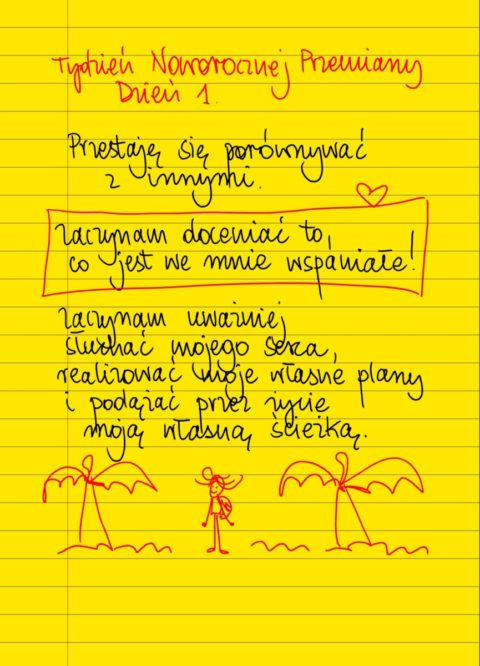 Tydzień Noworocznej Przemiany
Dzień 1.
Przestaję się porównywać
z innymi.
Zaczynam doceniać to,
co jest we mnie wspaniałe!
Zaczynam uważniej
słuchać mojego serca,
realizować moje własne plany
i podążać przez życie
moją własną ścieżką.